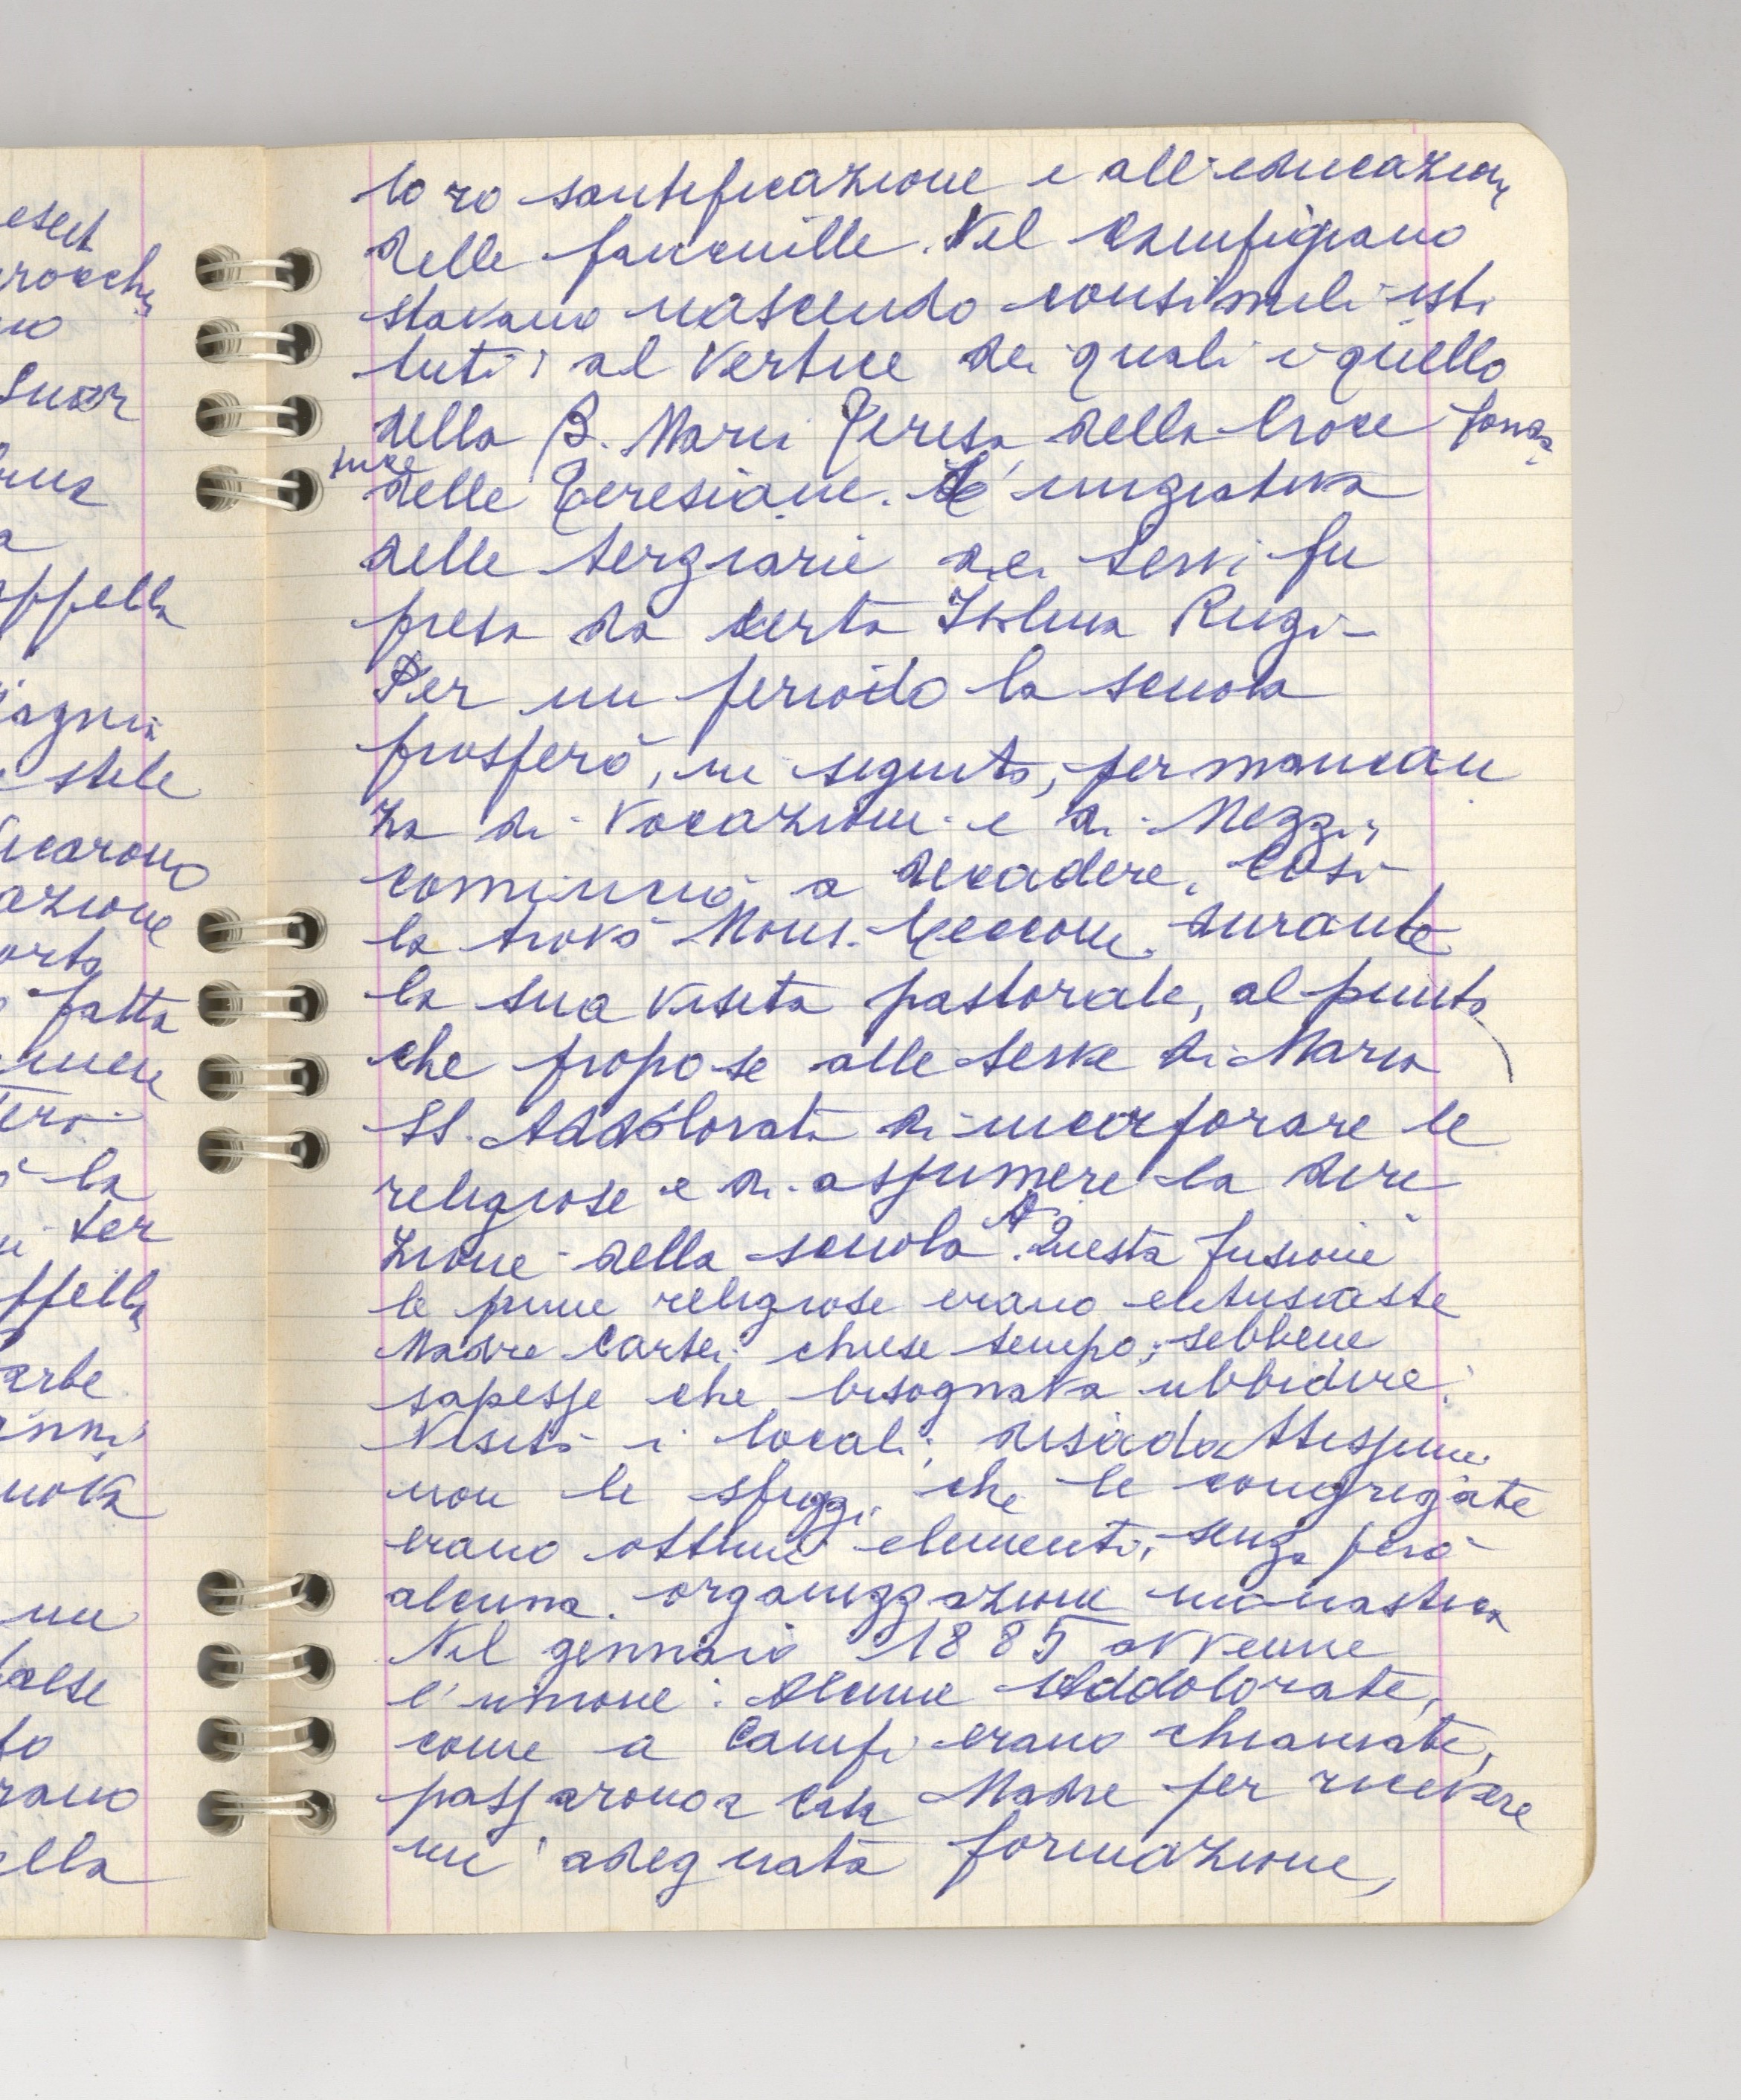 loro santificazione e all'educazione
delle fanciulle. Nel Campigiano
stavano nascendo consimili isti
tuti; al vertice dei quali è quello
della B. Maria Teresa della Croce fonda
trice
delle Teresiane. L'iniziativa
delle terziarie dei Servi fu
presa da certa Isolina Rugi
Per un periodo la scuola
prosperò, in seguito, per mancan
za di vocazioni e di mezzi,
cominciò a decadere. Così
la trovò Mons. Cecconi durante
la sua visita pastorale, al punto
che propose alle Serve di Maria
SS. Addolorata di incorporare le
religiose e di assumere la dire
zione della scuola. A Questa fusione
le prime religiose erano entusiaste
Madre chiese tempo, sebbene
sapesse che bisognava ubbidire.
Visitò i locali, disadattissimi
non le sfuggì che le congregate
erano ottimi elementi, senza però
alcuna organizzazione monastica
Nel gennaio 1885 avvenne
l'unione: Alcune Addolorate,
come a Campi erano chiamate,
passarono a Casa Madre per ricevere
un'adeguata formazione,